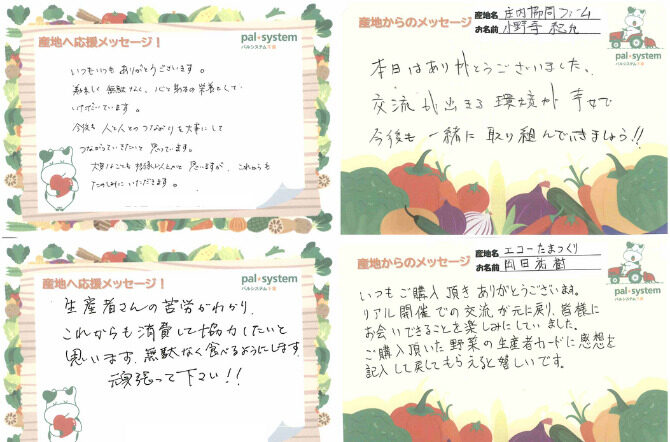 産地へ応援メッセージ！
pal*system
パルシステム千葉
いつもいつもありがとうございます。
美味しく無駄なく、心と身体の栄養として
いただいています。
今後も人と人とのつながりを大事にして
つながっていきたいと思っています。
大変なことも
思いますが、これからも
たのしみにいただきます。
産地からのメッセージ
産地名 庄内協同ファーム
お名前 小野寺
pal*system
パルシステム千葉
本日はありがとうございました。
交流が出来る環境が幸せで
今後も一緒に取り組んでいきましょう!!
産地へ応援メッセージ！
pal*system
パルシステム千葉
生産者さんの苦労がわかり、
これからも消費して協力したいと
思います。無駄なく食べるようにします。
頑張って下さい!!
産地からのメッセージ
産地名 エコーたまつくり
お名前
pal*system
パルシステム千葉
いつもご購入頂きありがとうございます。
リアル開催での交流が元に戻り、皆様に
お会いできることを楽しみにしていました。
ご購入頂いた野菜の生産者カードに感想を
記入して戻してもらえると嬉しいです。